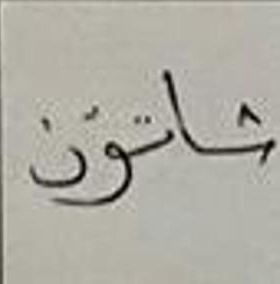 شاتؤن